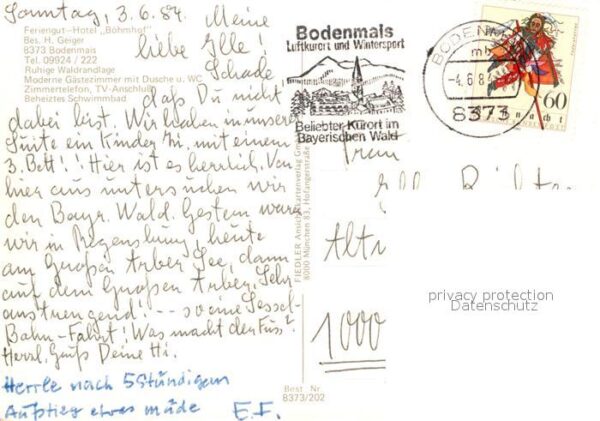 Sonntag, 3.6.84. Meine
liebe Elle!
Schade
daß Du nicht
dabei bist. Wir haben in unserer
Suite ein Kinderzi. mit einem
3. Bett!! Hier ist es herrlich. Von
hier aus untersuchen wir
den Bayr. Wald. Gestern waren
wir in Regensburg, heute
am Großen Arber See, dann
auf dem Großen Arber. Sehr
anstrengend! -- so eine Sessel-
Bahn-Fahrt! Was macht der Fuss?
Herzl. Gruß Deine Hi.
Herrle nach 5stündigem
Aufstieg etwas müde E.F.
Feriengut-Hotel „Böhmhof"
Bes. H. Geiger
8373 Bodenmais
Tel. 09924 / 222
Ruhige Waldrandlage
Moderne Gästezimmer mit Dusche u. WC
Zimmertelefon, TV-Anschluß
Beheiztes Schwimmbad
Bodenmais
Luftkurort und Wintersport
Beliebter Kurort im
Bayerischen Wald
BODENM
mb
-4.6.8
8373
60
FIEDLER Ansichtskartenverlag
8000 München 83, Hofangerstraße
Frau
Alt
1000
privacy protection
Datenschutz
Best Nr.
8373/202